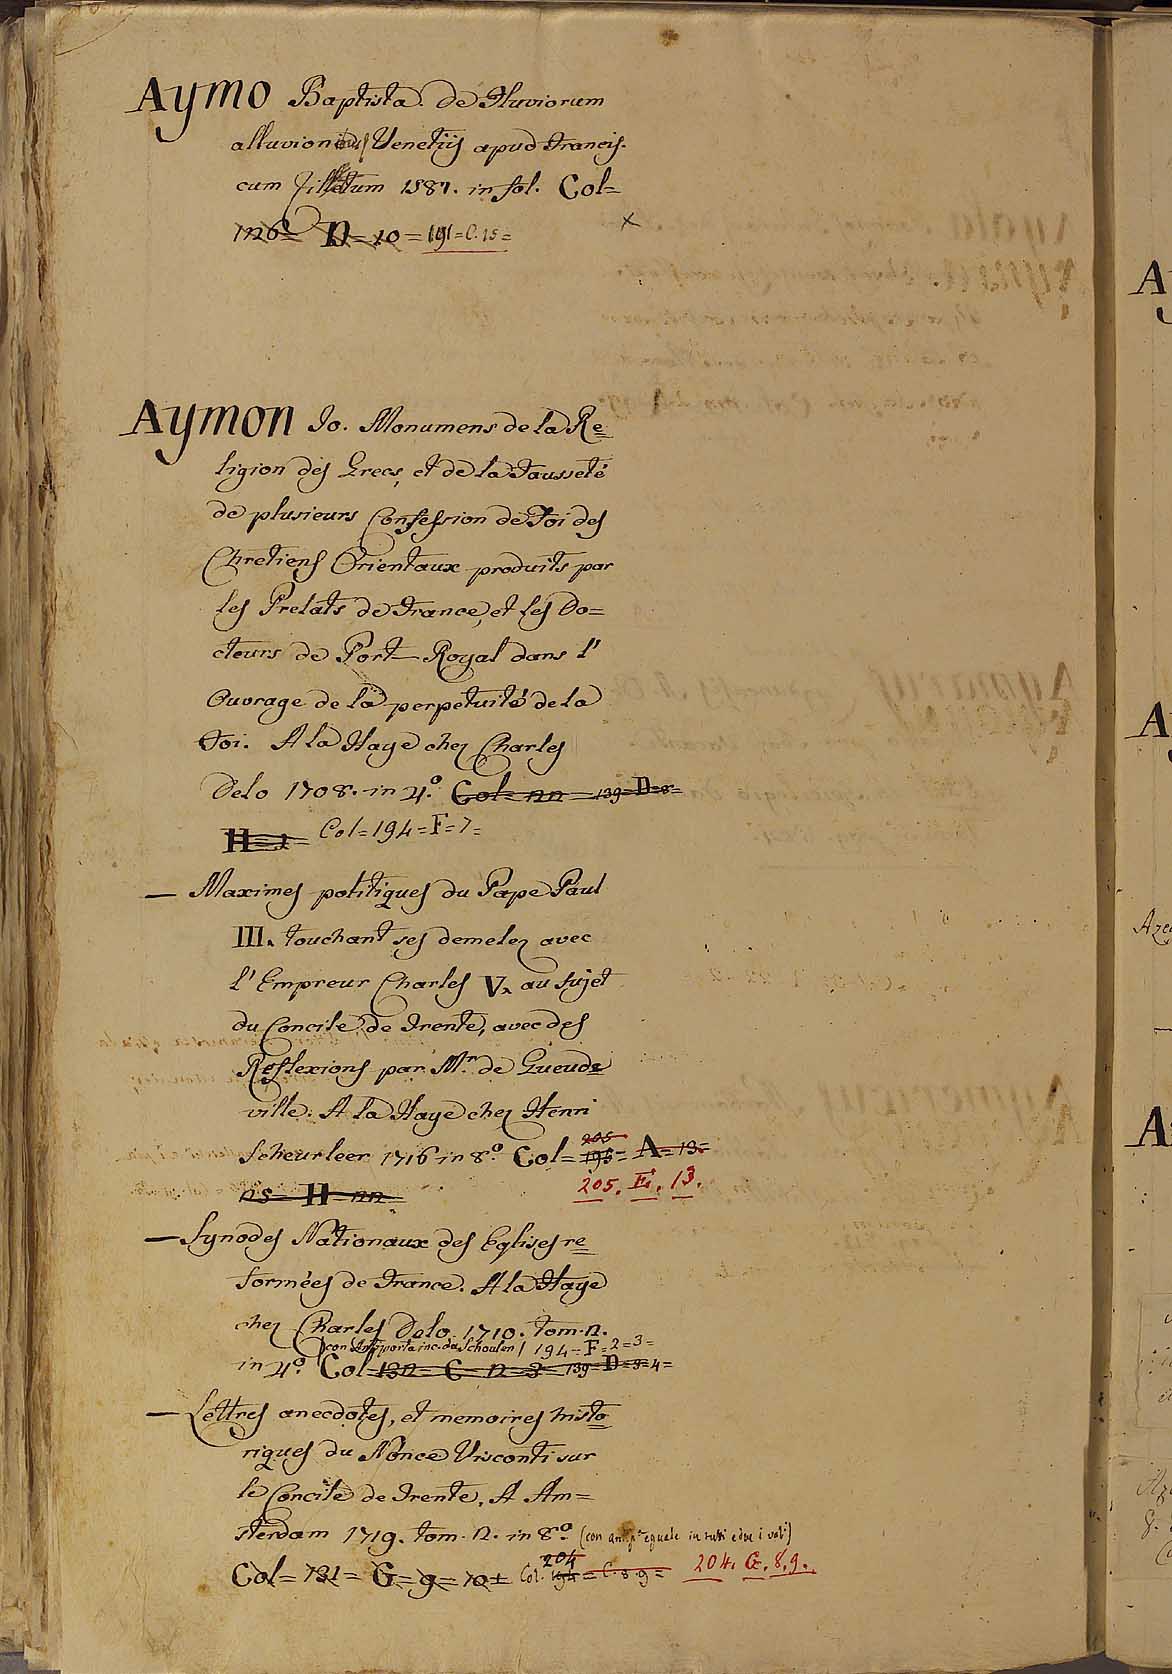 Aymo Baptista. de Fluviorum
alluvionibus Venetijs apud Francis-
cum Zilletum 1581. in fol. Col=
126= D=10=191=C.15=
Aymon Jo. Monumens de la Re=
ligion des Grecs, et de la Fausseté
de plusieurs Confession de Foi des
Chretiens Orientaux produits par
les Prelats de France, et les Do=
cteurs de Port-Royal dans l'
Ouvrage de la perpetuité de la
Foi. A la Haye chez Charles
Delo 1708. in 4.º Col=nn=139=D=8=
H=1= Col=194=F=7=
— Maximes politiques du Pape Paul
III. touchant ses demelez avec
l'Empreur Charles V. au sujet
du Concile de Trente, avec des
Reflexions par M.r de Gueude=
ville: A la Haye chez Henri
Scheurleer 1716 in 8.º Col=195= A=13=
205
ns H nn 205. E. 13.
— Synodes Nationaux des Eglises re=
formées de France. A la Haye
chez Charles Delo 1710. tom. 2.
(con Antiporta inc. da Schoulen) 194=F=2=3=
in 4.º Col=132=C=2=3=139=D=3=4=
— Lettres anecdotes, et memoires histo=
riques du Nonce Visconti sur
le Concile de Trente, A Am=
sterdam 1719. tom. 2. in 8.º (con antip.ª eguale in tutti e due i vol.i)
204
Col=131=G=9=10= Col. 194=C.8.9= 204. G. 8. 9.